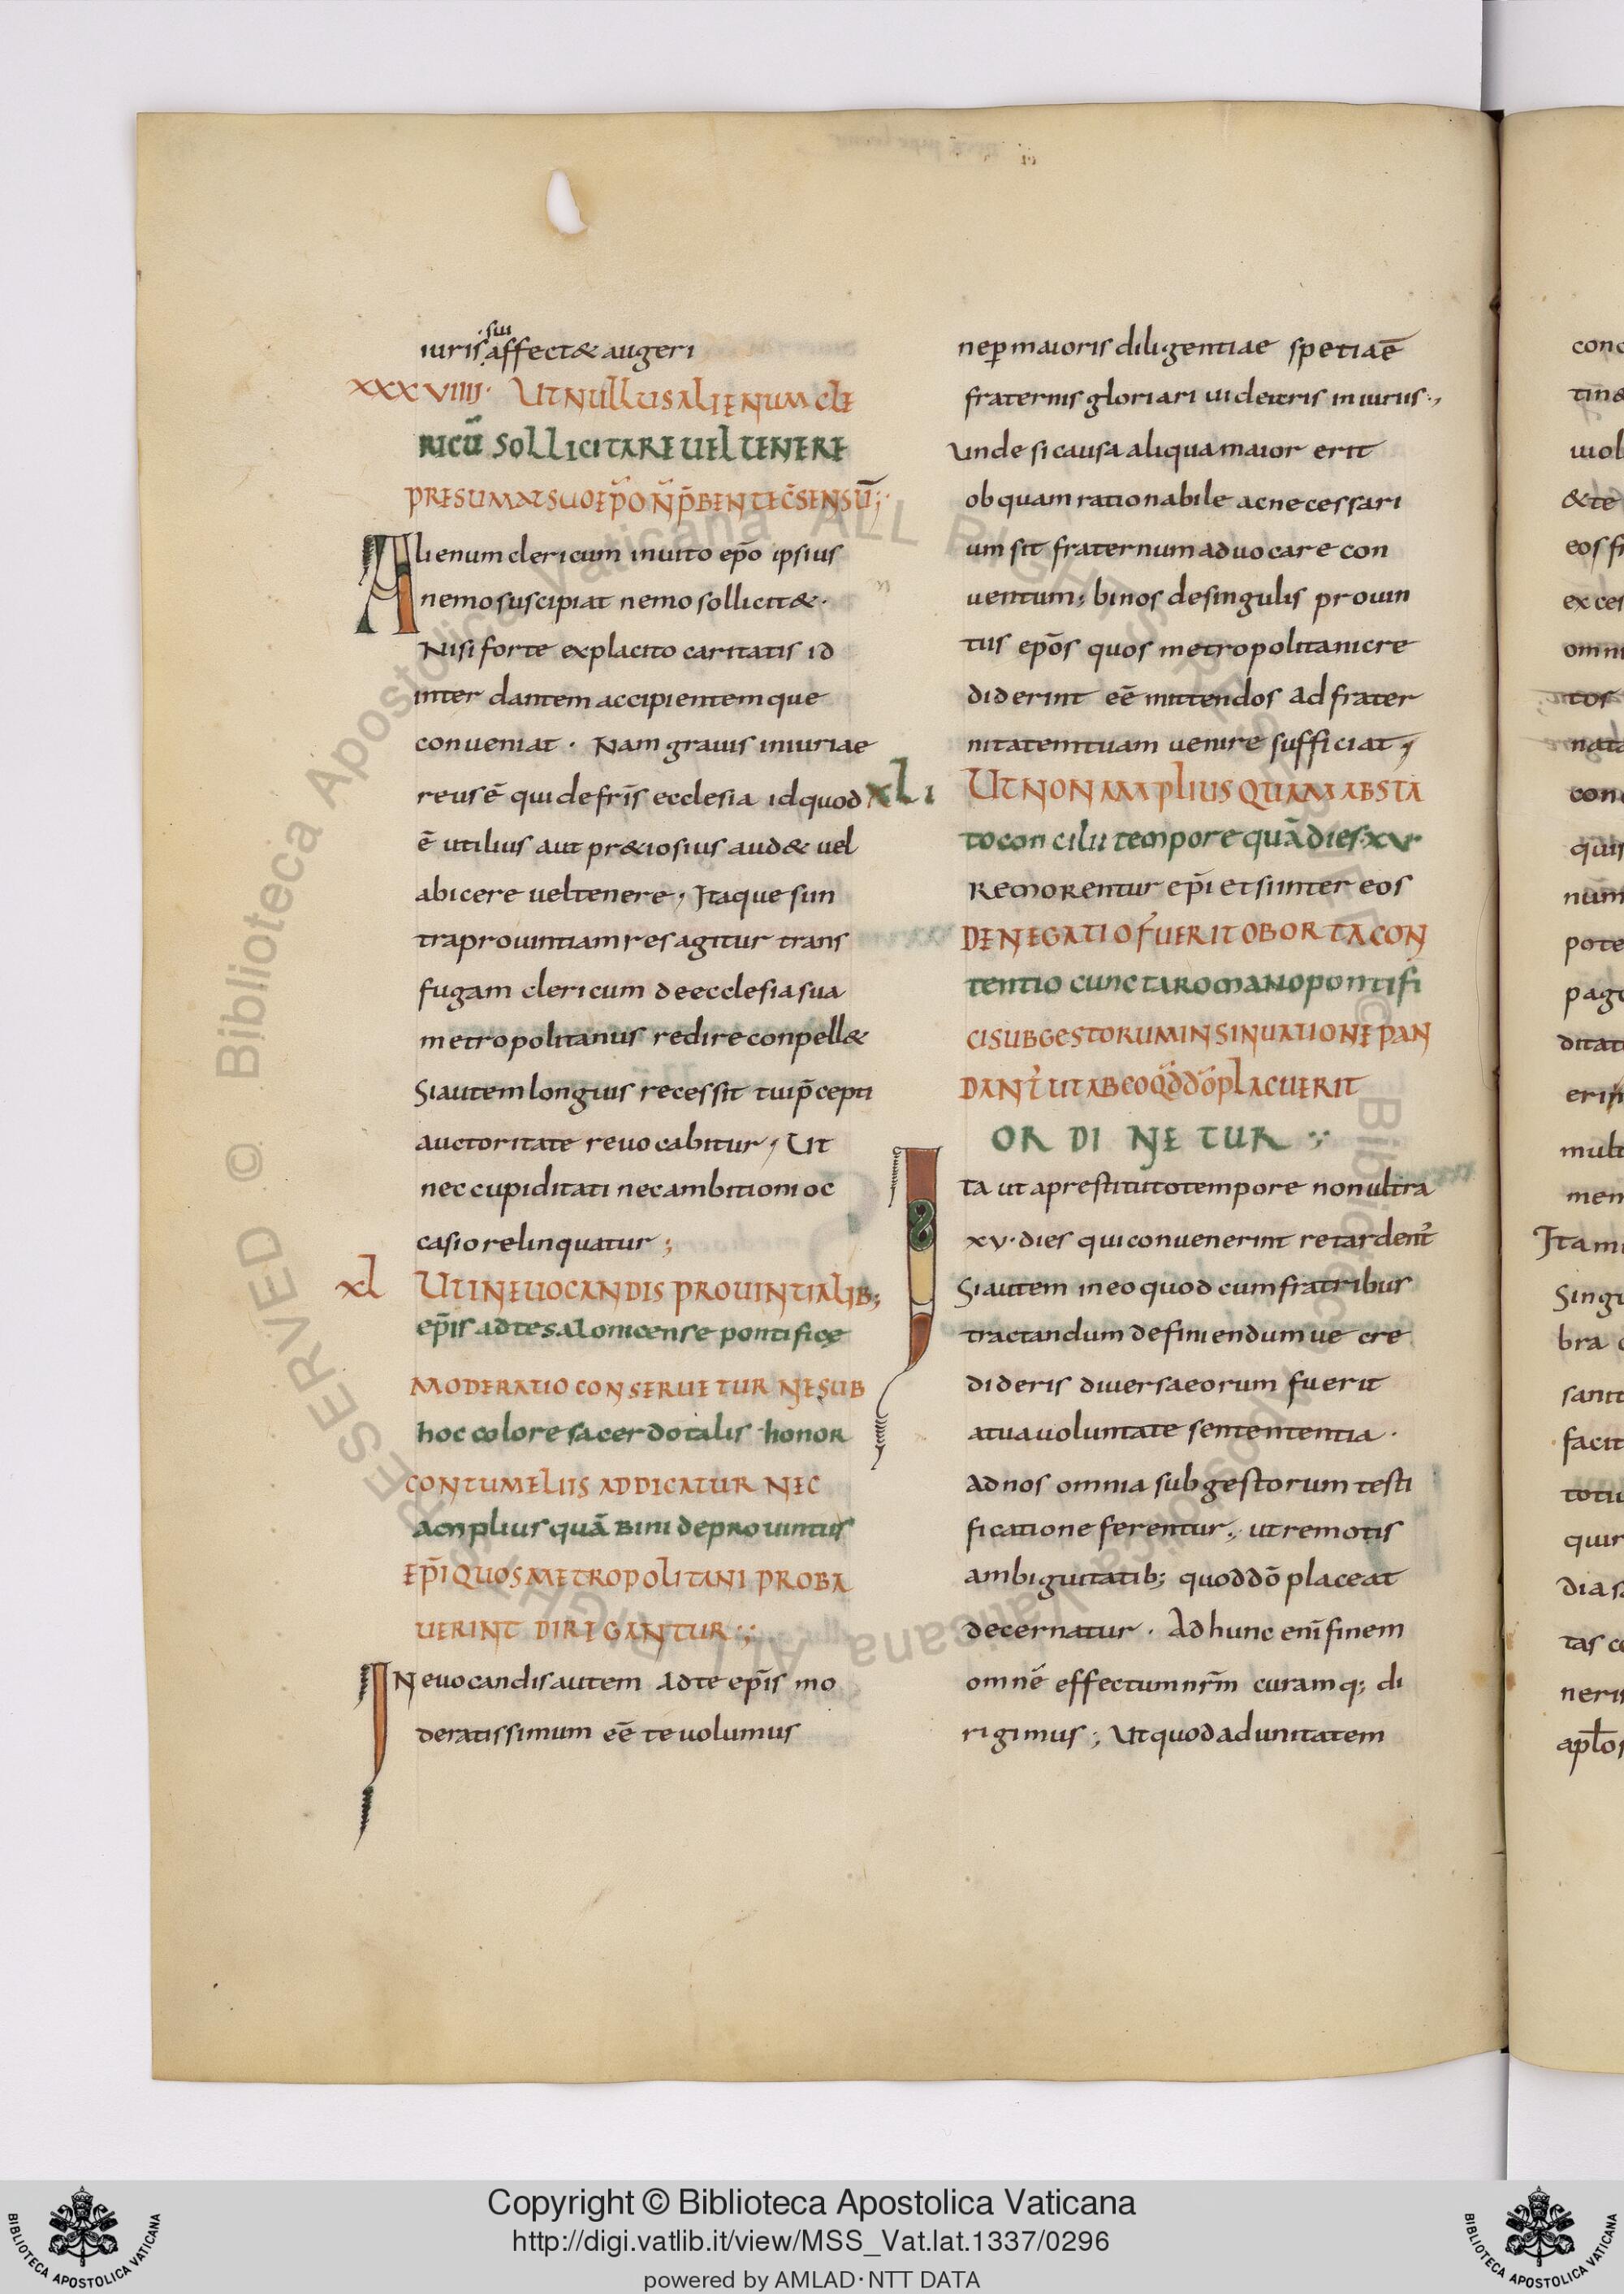 iuris ·sui· affect& augeri
XXXVIIII· UT NULLUS ALIENUM CLE
RICŪ SOLLICITARE UEL TENERE
PRESUMAT SUO EP̄O NŌ P̄BENTE C̄SENSŪ;
Alienum clericum inuito ep̄o ipsius
nemo suscipiat nemo sollicit&·
Nisi forte ex placito caritatis id
inter dantem accipientemque
conueniat · Nam grauis iniuriae
reus ē qui de fr̄is ecclesia id quod
ē utilius aut pr&iosius aud& uel
abicere uel tenere; Itaque si in
tra prouintiam res agitur trans
fugam clericum de ecclesia sua
metropolitanus redire conpell&
Si autem longius recessit tui p̄cepti
auctoritate reuocabitur; Ut
nec cupiditati nec ambitioni oc
casio relinquatur;
XL UT IN EUOCANDIS PROUINTIALIB;
ep̄is ad tesalonicense pontificę
MODERATIO CONSERUETUR NE SUB
hoc colore sacerdotalis honor
CONTUMELIIS ADDICATUR NEC
amplius quā bini de prouintiis
EP̄I QUOS METROPOLITANI PROBA
UERINT DIRIGANTUR:;
IN euocandis autem ad te ep̄is mo
deratissimum eē te uolumus
ne per maioris diligentiae spetiaē
fraternis gloriari uidearis iniuriis·,
Unde si causa aliqua maior erit
ob quam rationabile ac necessari
um sit fraternum aduocare con
uentum; binos de singulis prouin
tiis ep̄os quos metropolitani cre
diderint eē mittendos ad frater
nitatem tuam uenire sufficiat;
XLI UT NON AMPLIUS QUAM ABSTA
to concilii tempore quā dies·xv·
Remorentur ep̄i et si inter eos
DENEGATIO FUERIT OBORTA CON
tentio cuncta romano pontifi
CI SUBGESTORUM INSINUATIONE PAN
DANT̄ UT AB EO Q̄D D̄O PLACUERIT
ORDINETUR :;
Ita ut a prestituto tempore non ultra
xv· dies qui conuenerint retardent̄
Si autem in eo quod cum fratribus
tractandum definiendumue cre
dideris diuersa eorum fuerit
a tua uoluntate sentententia ·
ad nos omnia sub gestorum testi
ficatione ferentur; ut remotis
ambiguitatib; quod dō placeat
decernatur · Ad hunc enī finem
omnē effectum nr̄m curamq; di
rigimus; Ut quod ad unitatem
Copyright © Biblioteca Apostolica Vaticana
http://digi.vatlib.it/view/MSS_Vat.lat.1337/0296
powered by AMLAD·NTT DATA